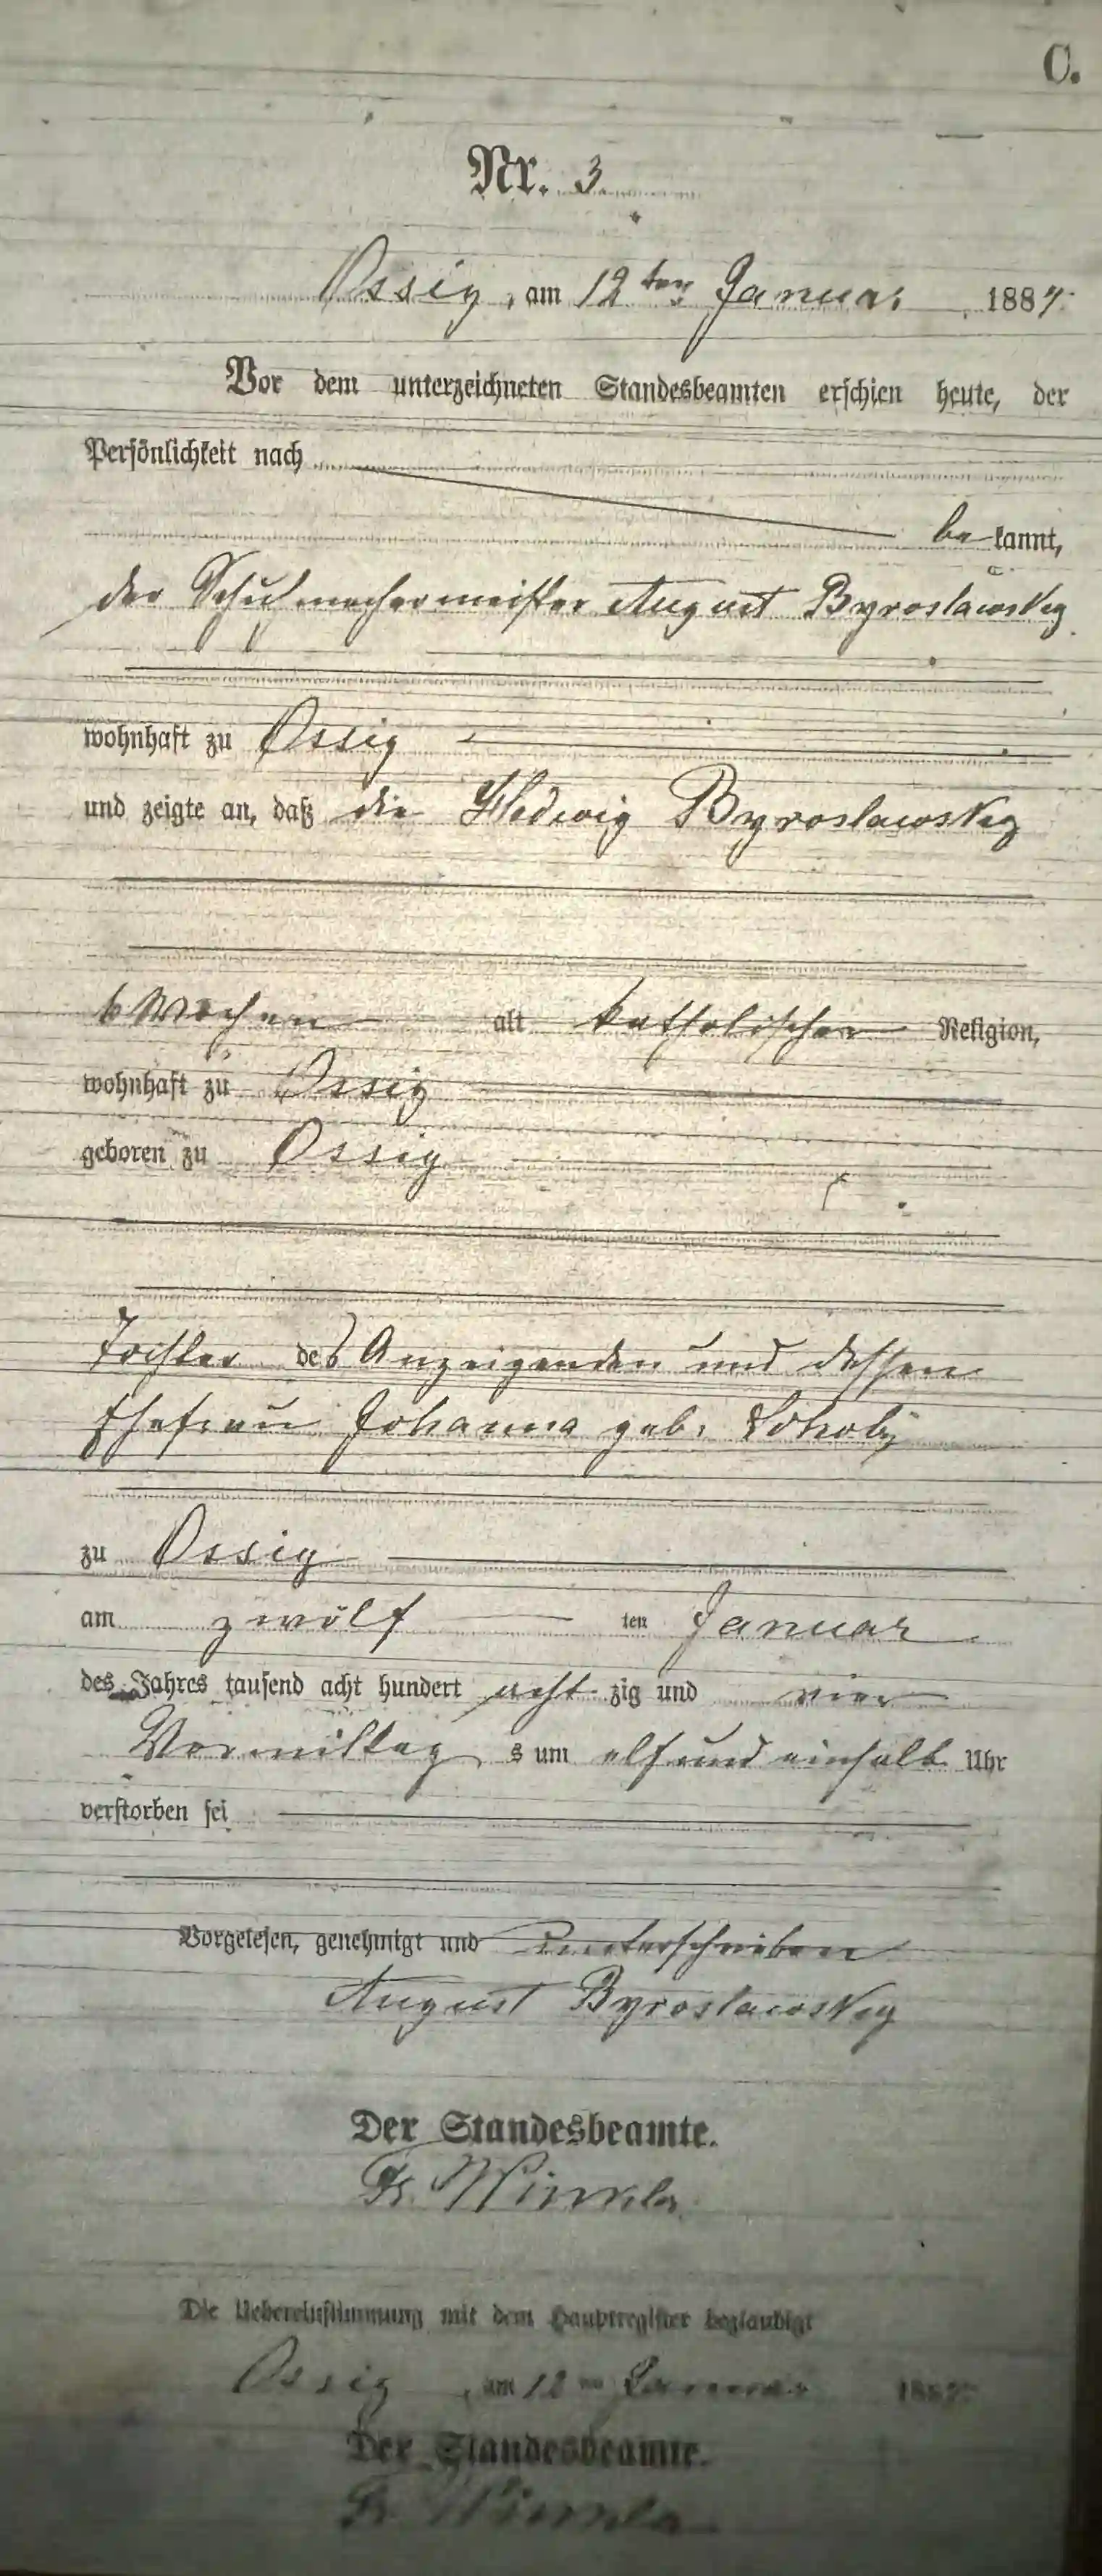 C.
Nr. 3
Ossig, am 12ten Januar 1884.
Vor dem unterzeichneten Standesbeamten erschien heute, der
Persönlichkeit nach
bekannt,
der Schuhmachermeister August Byroslawsky
wohnhaft zu Ossig
und zeigte an, daß die Hedwig Byroslawsky
6 Wochen alt katholischer Religion,
wohnhaft zu Ossig
geboren zu Ossig
Tochter des Anzeigenden und dessen
Ehefrau Johanna geb.
zu Ossig
am zwölf ten Januar
des Jahres tausend acht hundert achtzig und vier
Vormittags um elf und einhalb Uhr
verstorben sei
Vorgelesen, genehmigt und unterschrieben
August Byroslawsky
Der Standesbeamte.
Fr. Winkler
Die Uebereinstimmung mit dem Hauptregister beglaubigt
Ossig, am 12ten Januar 188
Der Standesbeamte.
Fr. Winkler